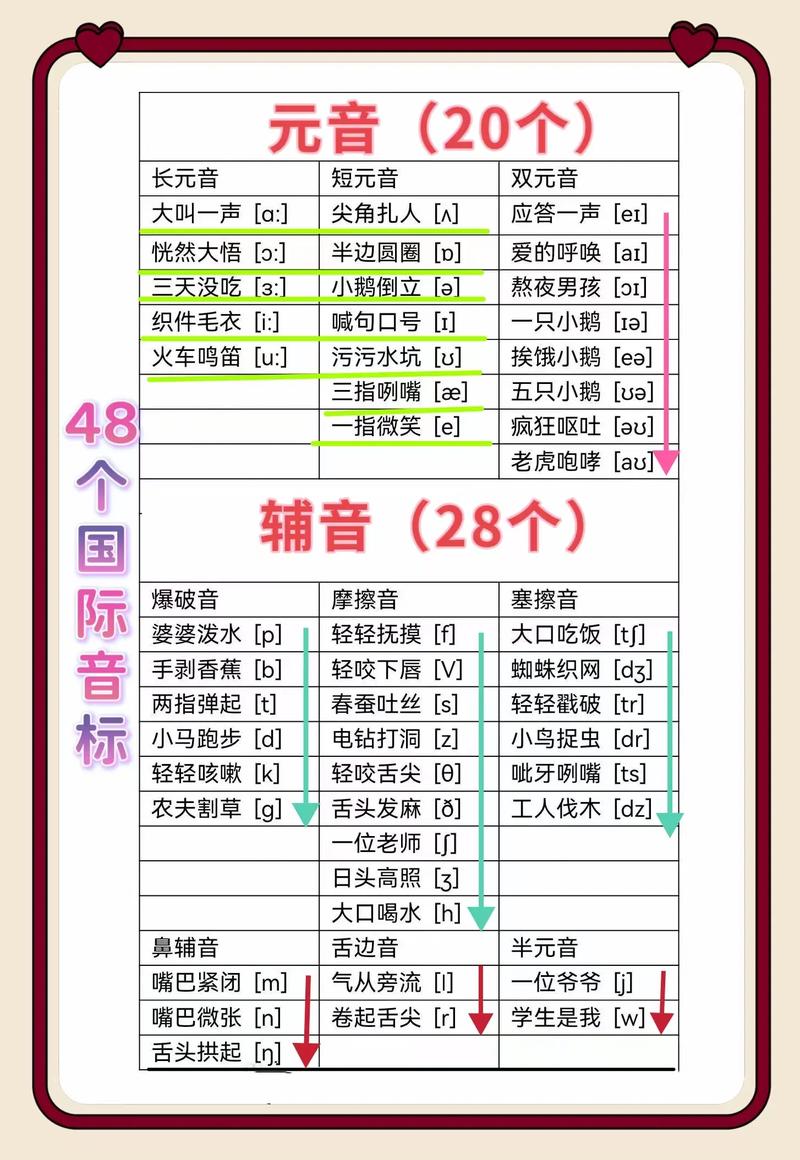 元音（20个）
长元音 短元音 双元音
大叫一声 [ɑ:] 尖角扎人 [ʌ] 应答一声 [eɪ]
恍然大悟 [ɔ:] 半边圆圈 [ɒ] 爱的呼唤 [aɪ]
三天没吃 [ɜ:] 小鹅倒立 [ə] 熬夜男孩 [ɔɪ]
织件毛衣 [i:] 喊句口号 [ɪ] 一只小鹅 [ɪə]
火车鸣笛 [u:] 污污水坑 [ʊ] 挨饿小鹅 [eə]
三指咧嘴 [æ] 五只小鹅 [ʊə]
一指微笑 [e] 疯狂呕吐 [əʊ]
老虎咆哮 [aʊ]
48个国际音标
辅音（28个）
爆破音 摩擦音 塞擦音
婆婆泼水 [p] 轻轻抚摸 [f] 大口吃饭 [tʃ]
手剥香蕉 [b] 轻咬下唇 [V] 蜘蛛织网 [dʒ]
两指弹起 [t] 春蚕吐丝 [s] 轻轻戳破 [tr]
小马跑步 [d] 电钻打洞 [z] 小鸟捉虫 [dr]
轻轻咳嗽 [k] 轻咬舌尖 [θ] 呲牙咧嘴 [ts]
农夫割草 [g] 舌头发麻 [ð] 工人伐木 [dz]
一位老师 [ʃ]
日头高照 [ʒ]
大口喝水 [h]
鼻辅音 舌边音 半元音
嘴巴紧闭 [m] 气从旁流 [l] 一位爷爷 [j]
嘴巴微张 [n] 卷起舌尖 [r] 学生是我 [w]
舌头拱起 [ŋ]